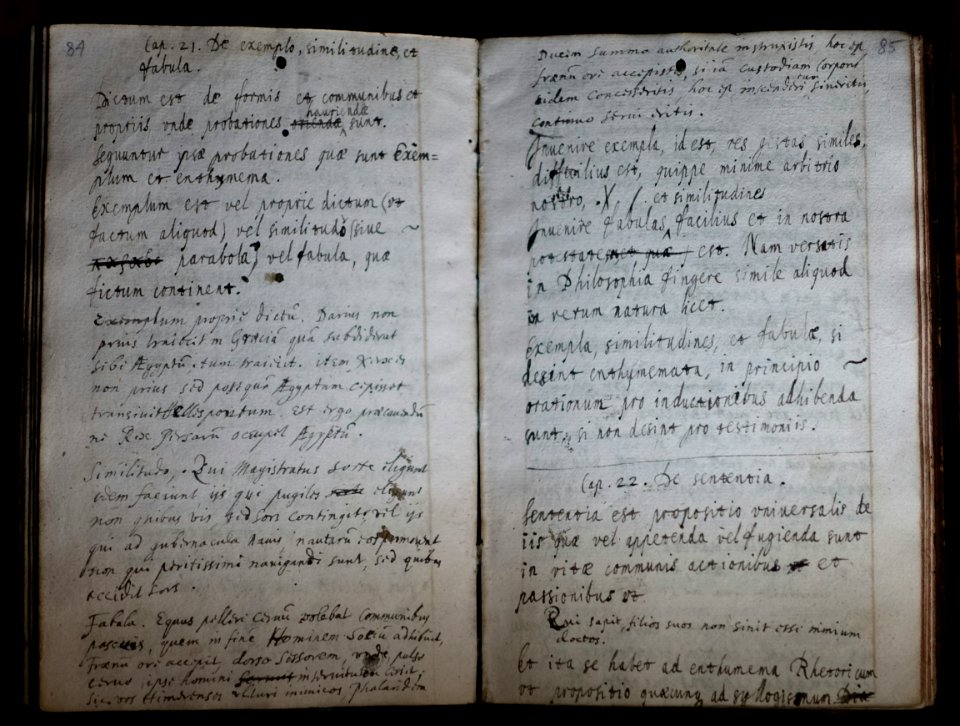 84
Cap. 21. De exemplo, similitudine, et
fabula.
Dictum est de formis et communibus et
hauriendæ
propriis unde probationes sunt.
Sequuntur ipsæ probationes quæ sunt Exem=
plum et enthymema.
Exemplum est vel proprie dictum (ut
factum aliquod) vel similitudo (siue
parabola) vel fabula, quæ
fictum continent.
Exemplum proprie dictū. Darius non
prius traiecit in Græciā quā subdidisset
sibi Ægyptū, tum traiecit. item Xerxes
non prius sed postquā Ægyptum cepisset
transiuit Hellispontum. est ergo præcauendū
ne Rex Persarū occupet Ægyptū.
Similitudo, Qui Magistratus sorte eligunt
idem faciunt iis qui pugiles eligunt
non quibus vis sed sors contingit, vel ijs
qui ad gubernacula nauis, nautarū eos
non qui peritissimi nauigandi sunt, sed quibus
accidit sors.
Fabula. Equus pelleri ceruū volebat communibus
pascuis, quem in fine Hominem sociū adhibuit,
frænū ori accepit, dorso sessorem, unde pulso
ceruo, ipse homini in seruitutem
sic vos Himerenses velut inimicos Phalaridem
85
Ducem summa authoritate instruxistis, hoc est
frænū ori accepistis, si iā custodiam corporis
eidem concesseritis hoc est inscendere sineritis,
continuo seruieritis.
Inuenire exempla, id est, res gestas similes,
difficilius est, quippe minime arbitrio
nostro,
et similitudines
Inuenire fabulas facilius et in nostra
potestate est. Nam versatis
in Philosophia fingere simile aliquod
in rerum natura licet.
Exempla, similitudines, et fabulæ, si
desint enthymemata, in principio
orationum pro inductionibus adhibenda
sunt, si non desint pro testimoniis.
Cap. 22. De sententia.
Sententia est propositio vniuersalis de
iis quæ vel appetenda vel fugienda sunt
in vitæ communis actionibus et
passionibus ut
Qui sapit, filios suos non sinit esse nimium
doctos.
Et ita se habet ad enthymema Rhetoricum
ut propositio quæcunq ad syllogismum